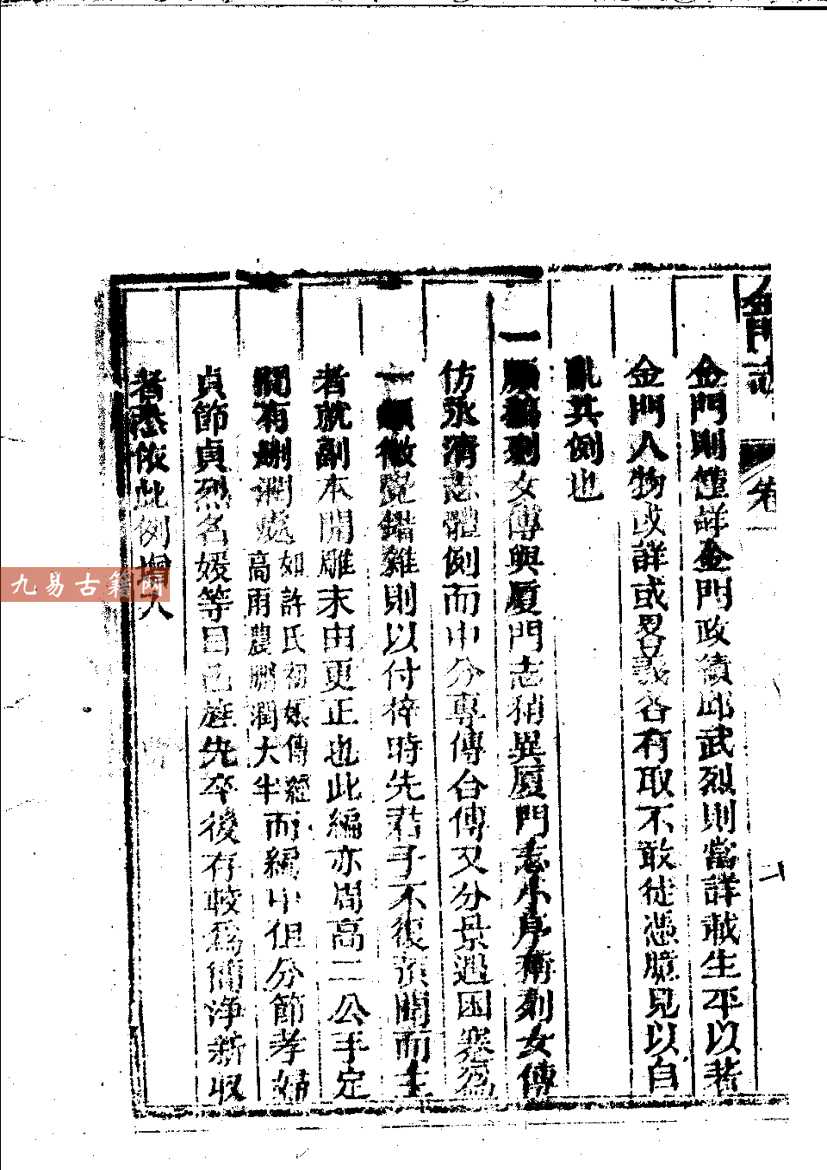 金門志 卷
金門則僅詳金門政績邱武烈則當詳載生平以著
金門人物或詳或畧義各有取不敢徒憑臆見以自
亂其例也
一 列女傳與厦門志稍異厦門志小序稱列女傳
仿永清志體例而中分專傳合傳又分景遇困塞為
一類微覺錯雜則以付梓時先君子不復預聞而主
者就副本開雕未由更正也此編亦周高二公手定
間有刪潤處如許氏初娘傳經高雨農刪潤大半而編中但分節孝婦
貞節貞烈名媛等目已旌先卒後存較為簡淨新收
者悉依此例增入
九易古籍網